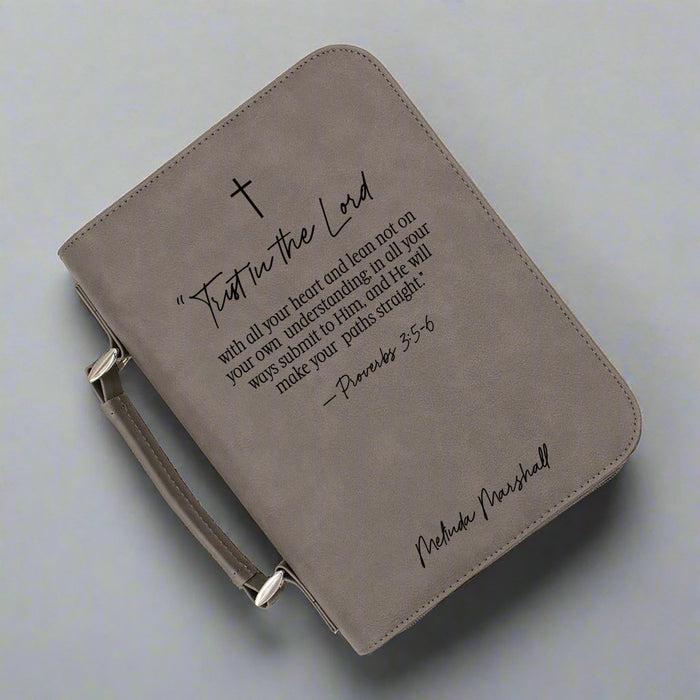 "Trust in the Lord
with all your heart and lean not on
your own understanding; in all your
ways submit to Him, and He will
make your paths straight."
— Proverbs 3:5-6
Melinda Marshall